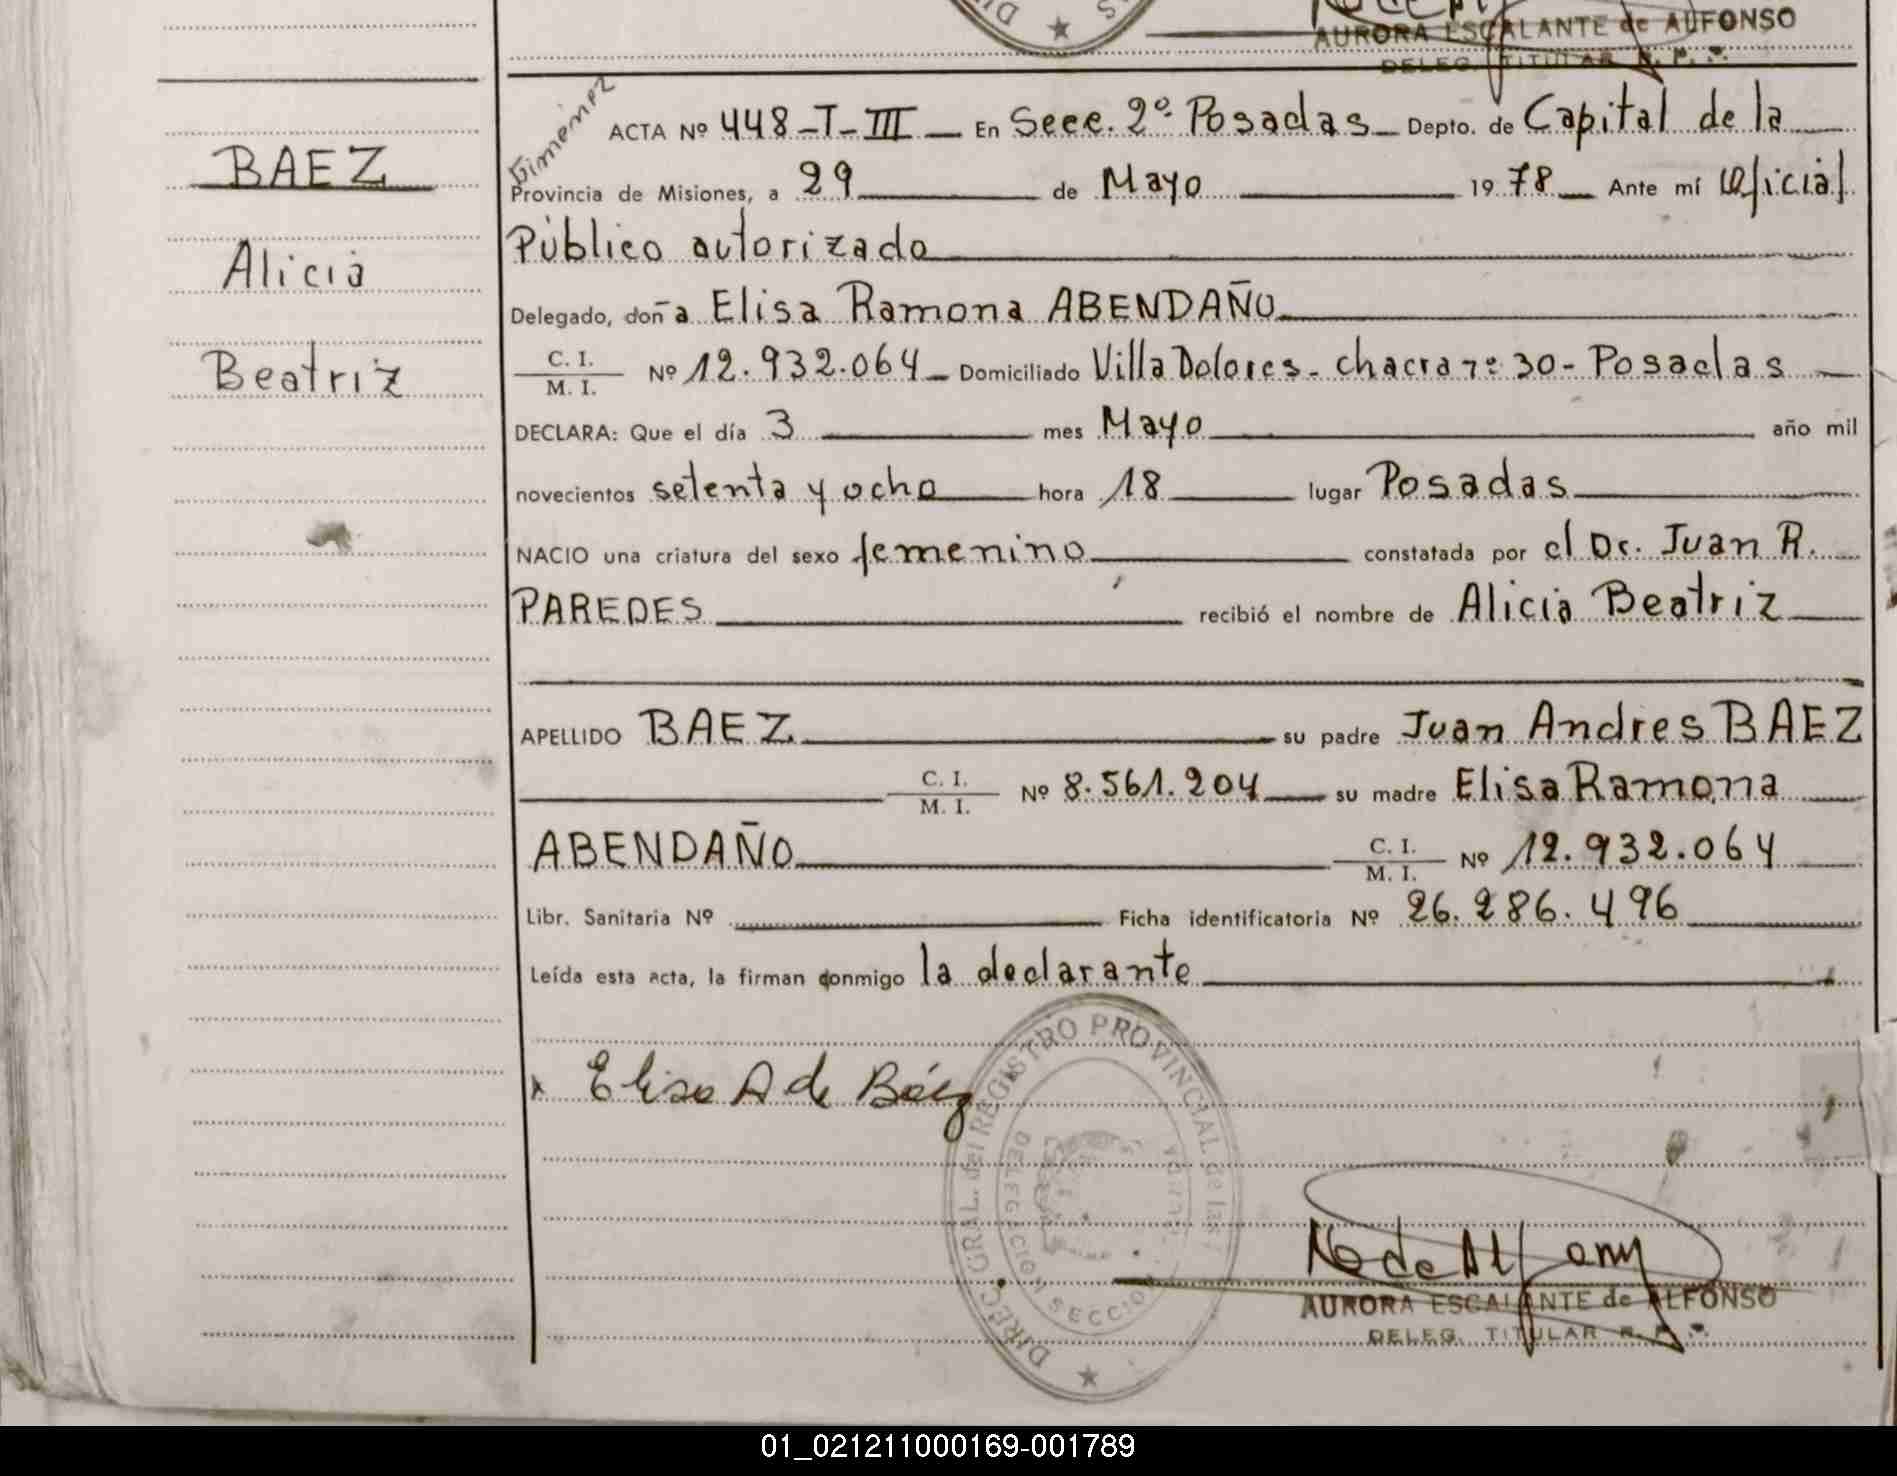 AURORA ESCALANTE de ALFONSO
DELEG. TITULAR R. P.
Gimenez
ACTA Nº 448-T-III En Secc. 2º Posadas Depto. de Capital de la
BAEZ
Provincia de Misiones, a 29 de Mayo 1978 Ante mí Oficial
Público autorizado
Alicia
Delegado, doña Elisa Ramona ABENDAÑO
Beatriz
C. I.
M. I. Nº 12.932.064 Domiciliado Villa Dolores - chacra nº 30 - Posadas
DECLARA: Que el día 3 mes Mayo año mil
novecientos setenta y ocho hora 18 lugar Posadas
NACIO una criatura del sexo femenino constatada por el Dr. Juan R.
PAREDES recibió el nombre de Alicia Beatriz
APELLIDO BAEZ su padre Juan Andres BAEZ
C. I.
M. I. Nº 8.561.204 su madre Elisa Ramona
ABENDAÑO C. I.
M. I. Nº 12.932.064
Libr. Sanitaria Nº Ficha identificatoria Nº 26.286.496
Leída esta acta, la firman conmigo la declarante
Elisa A de Báez
DIREC. GRAL. del REGISTRO PROVINCIAL de las
DELEGACION SECCION
AURORA ESCALANTE de ALFONSO
DELEG. TITULAR R. P.
01_021211000169-001789